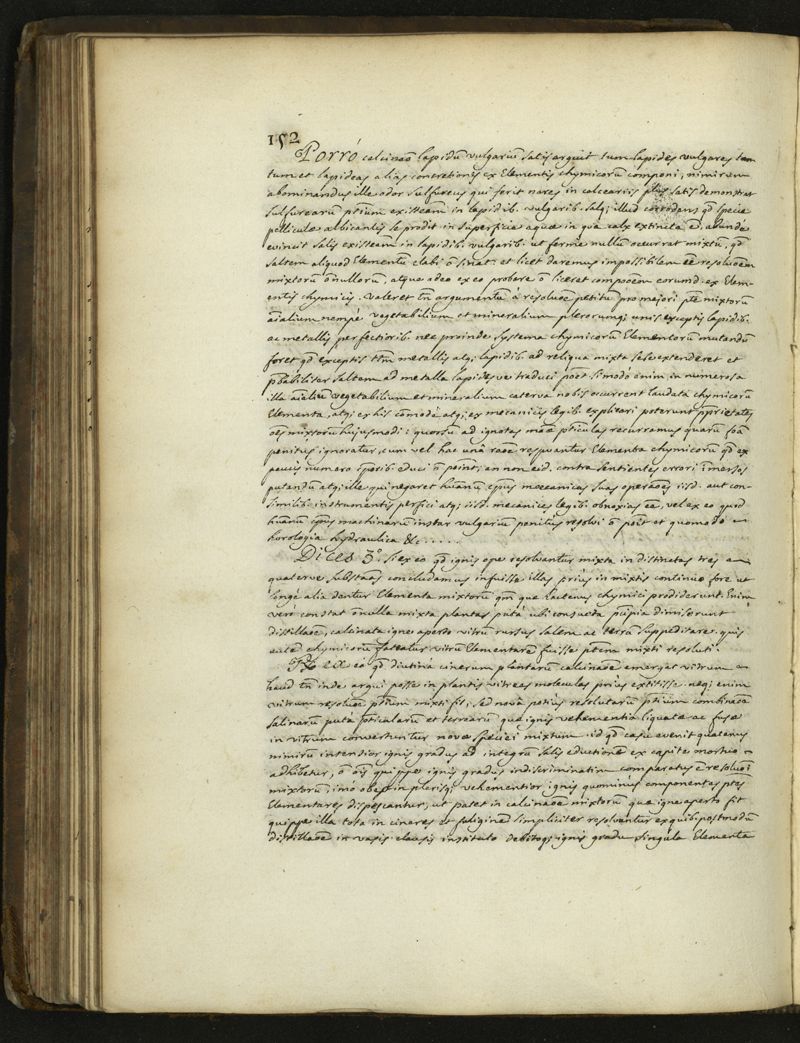 152
Porrò calcinaō lapidū vulgariū satis arguit tum lapides vulgares tam
tum et lapideas alias concretiones ex Elementis chymicorū componi, nimirum
abominandus ille odor sulfureus qui ferit nares in calceariis plus satis demonstrat
sulfurearū ptiūm existeām in lapidib. vulgarib. salq; illud corrodens qd specie
pelliculæ albicantis se prodit in superficie aquæ in qua calx extincta ē, abundè
evincit salis existeām in lapidib. vulgarib. ut fermè nullū occurrat mixtū, qd
saltem aliquod Elementū elabi ō sinat: et licet daremus impossibilem eē resoluōem
mixtorū ōnullorū, atque adeo ex eo probare ō liceret compoōem eorumd. ex Elem-
entis chymicis. valeret tn̄ argumentū à resoluōe petitū pro majori pte mixtorū
aīalium nempè vegetabilium et mineralium plerorumq; unis exceptis lapidib.
ac metallis perfectiorib. nec proindè systema chymicorū Elementorū mutandū
foret qd exceptis ttm̄ metallis atq; lapidib. ad reliqua mixta sese extenderet et
pbabiliter saltem ad metalla lapidesve traduci poēt si modo enim in numerosa
illa aīaliū vegetabilium et mineralium caterva nobis occurrent laudata chymicorū
Elementa, atq; ex his cōmodè atq; ex mecanicis legib. explicari poterunt pprietates
oēs mixtorū hujusmodi: quorsū ad ignotas mæ pticulas recurramus quarū foā
penitus ignoratur, cum vel hac unā raōe respuantur Elementa chymicorū qd ex
paucis numero corpib. educi ō point, an non eid. contra sentientes errori īmersos
putandū atq; ille qui negaret huānū cpus mecanicas suas operaōes iisd. aut con-
similib. instrumentis perfici atq; iisd. mecanices legib. obnoxius eē, vel ex eo quod
huānū cpus machinarū instar vulgariū penitus resolvi ō poēt et quomodo
horologia hydraulica &c.....
Dices 3°. si ex eo qd ignis ope resolvantur mixta in distinctas tres
quatuorve substās concludamus infuisse illas prius in mixtis continuo fore ut
longè alia dentur Elementa mixtorū qm̄ quæ hactenus chymici prodiderunt. Enim
verò constat ōnulla mixta plantas putà ubi consueta pcipia dimiserunt
distillaōe, calcinata igne aperto vitrū rursus salem ac terrā suppeditare. quis
autē chymicorū fateatur vitrū Elementarē fuisse ptem mixti resoluti.
Rx. ex eo qd diutinā cinerum plantarū calcinaōe emergat vitrum
haud tn̄ inde argui posse in plantis vitreas moleculas prius extitisse. neq; enim
vitrum resoluōe ptium mixti fit, sed novâ potius resolutarū ptium combinaōe
salinarū putà pticularū et terrearū quæ ignis vehementiâ liquatæ ac fusæ
in vitrum convertuntur novæ speciei mixtum: id qd casu evenit quatenus
nimirū intensior ignis gradus ad integrū salis eductionē ex capite mortuo
adhibetur, ō oīs quippe ignis gradus indiscriminatim comparatus ē resoluōi
mixtorū, imò obest in plerisq; vehementior ignis quominus componentes ptes
Elementares dispescantur, ut patet in calcinaōe mixtorū quæ igne aperto fit
quippe illa tota in cineres et fuliginē simpliciter resolvantur ex quib. postmodū
distillaōe in vasis clausis instituto debitoq; ignis gradu singula Elementa